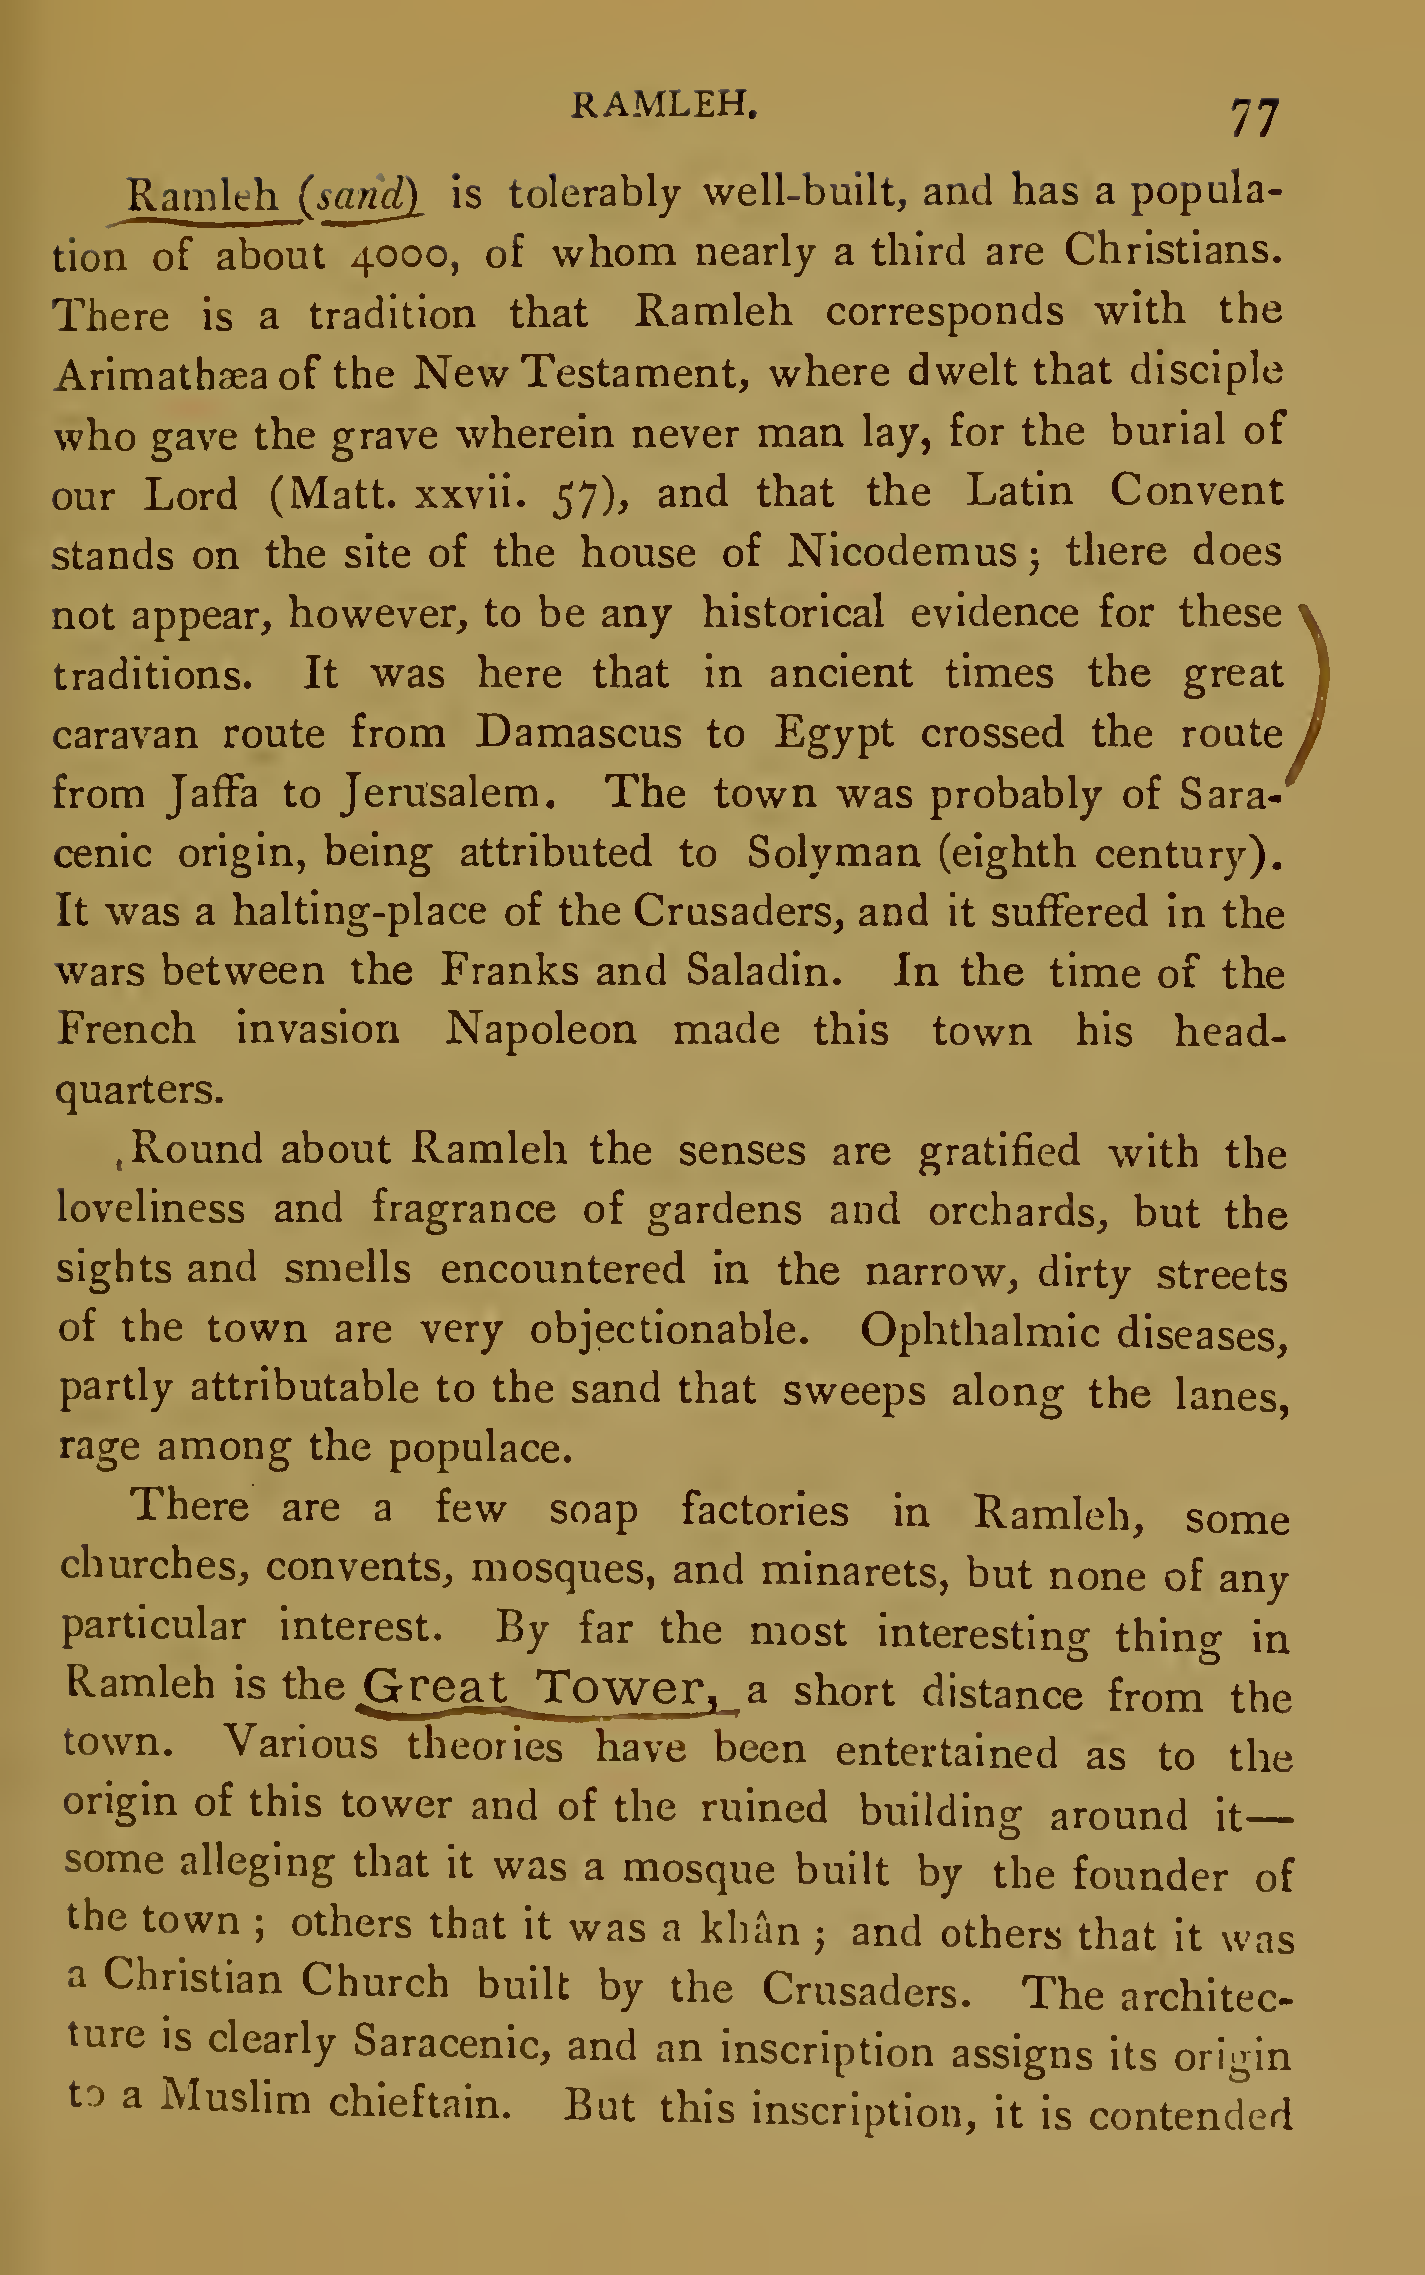 RAMLEH. 77
Ramleh (sand) is tolerably well-built, and has a popula-
tion of about 4000, of whom nearly a third are Christians.
There is a tradition that Ramleh corresponds with the
Arimathæa of the New Testament, where dwelt that disciple
who gave the grave wherein never man lay, for the burial of
our Lord (Matt. xxvii. 57), and that the Latin Convent
stands on the site of the house of Nicodemus; there does
not appear, however, to be any historical evidence for these
traditions. It was here that in ancient times the great
caravan route from Damascus to Egypt crossed the route
from Jaffa to Jerusalem. The town was probably of Sara-
cenic origin, being attributed to Solyman (eighth century).
It was a halting-place of the Crusaders, and it suffered in the
wars between the Franks and Saladin. In the time of the
French invasion Napoleon made this town his head-
quarters.
Round about Ramleh the senses are gratified with the
loveliness and fragrance of gardens and orchards, but the
sights and smells encountered in the narrow, dirty streets
of the town are very objectionable. Ophthalmic diseases,
partly attributable to the sand that sweeps along the lanes,
rage among the populace.
There are a few soap factories in Ramleh, some
churches, convents, mosques, and minarets, but none of any
particular interest. By far the most interesting thing in
Ramleh is the Great Tower, a short distance from the
town. Various theories have been entertained as to the
origin of this tower and of the ruined building around it—
some alleging that it was a mosque built by the founder of
the town; others that it was a khân; and others that it was
a Christian Church built by the Crusaders. The architec-
ture is clearly Saracenic, and an inscription assigns its origin
to a Muslim chieftain. But this inscription, it is contended